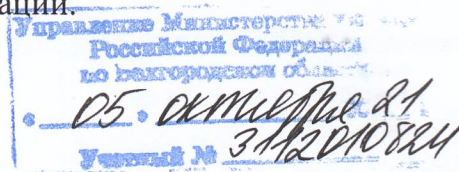 ации.
Управление Министерства
Российской Федерации
по Белгородской области
« 05 » октября 21
Учетный № 3112010824